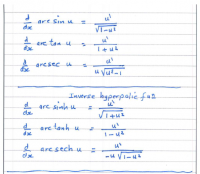 d/dx arc sin u = u'/√1-u²
d/dx arc tan u = u'/1+u²
d/dx arcsec u = u'/u√u²-1
Inverse hyperbolic fns
d/dx arc sinh u = u'/√1+u²
d/dx arc tanh u = u'/1-u²
d/dx arc sech u = u'/-u√1-u²